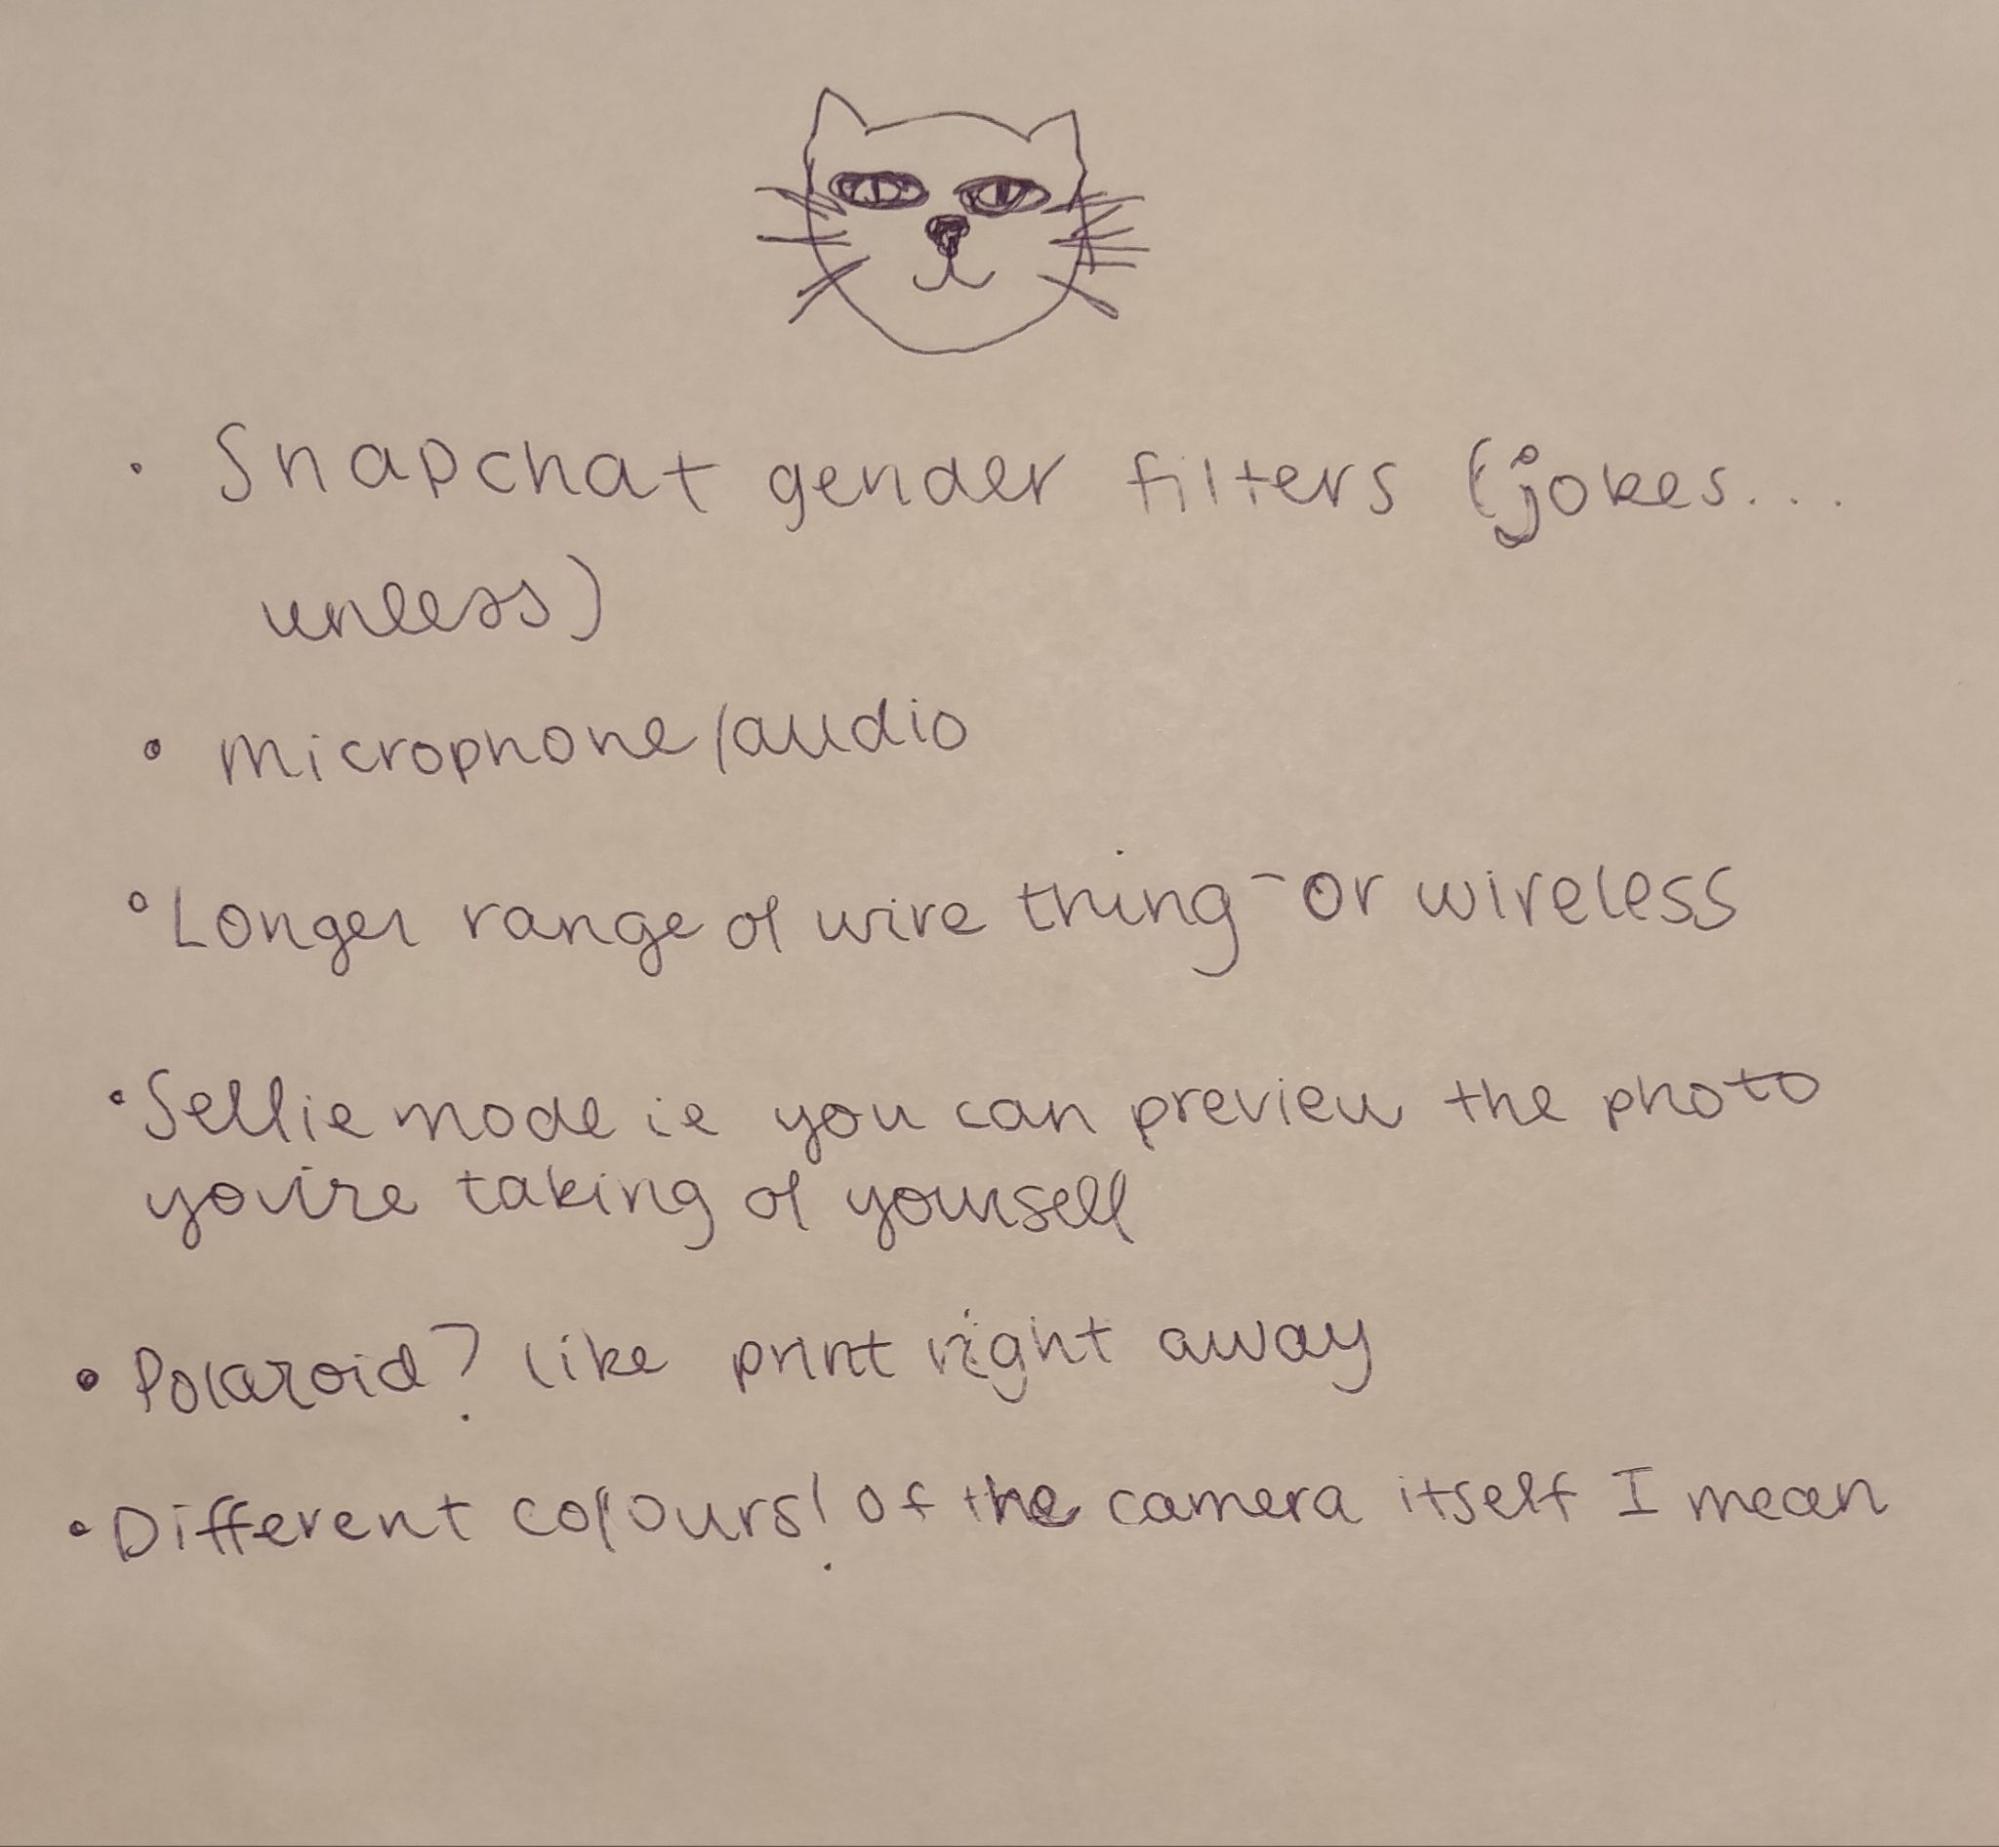 • Snapchat gender filters (jokes...
unless)
• microphone/audio
• Longer range of wire thing - or wireless
• Selfie mode ie you can preview the photo
you're taking of yourself
• Polaroid? like print right away
• Different colours! of the camera itself I mean